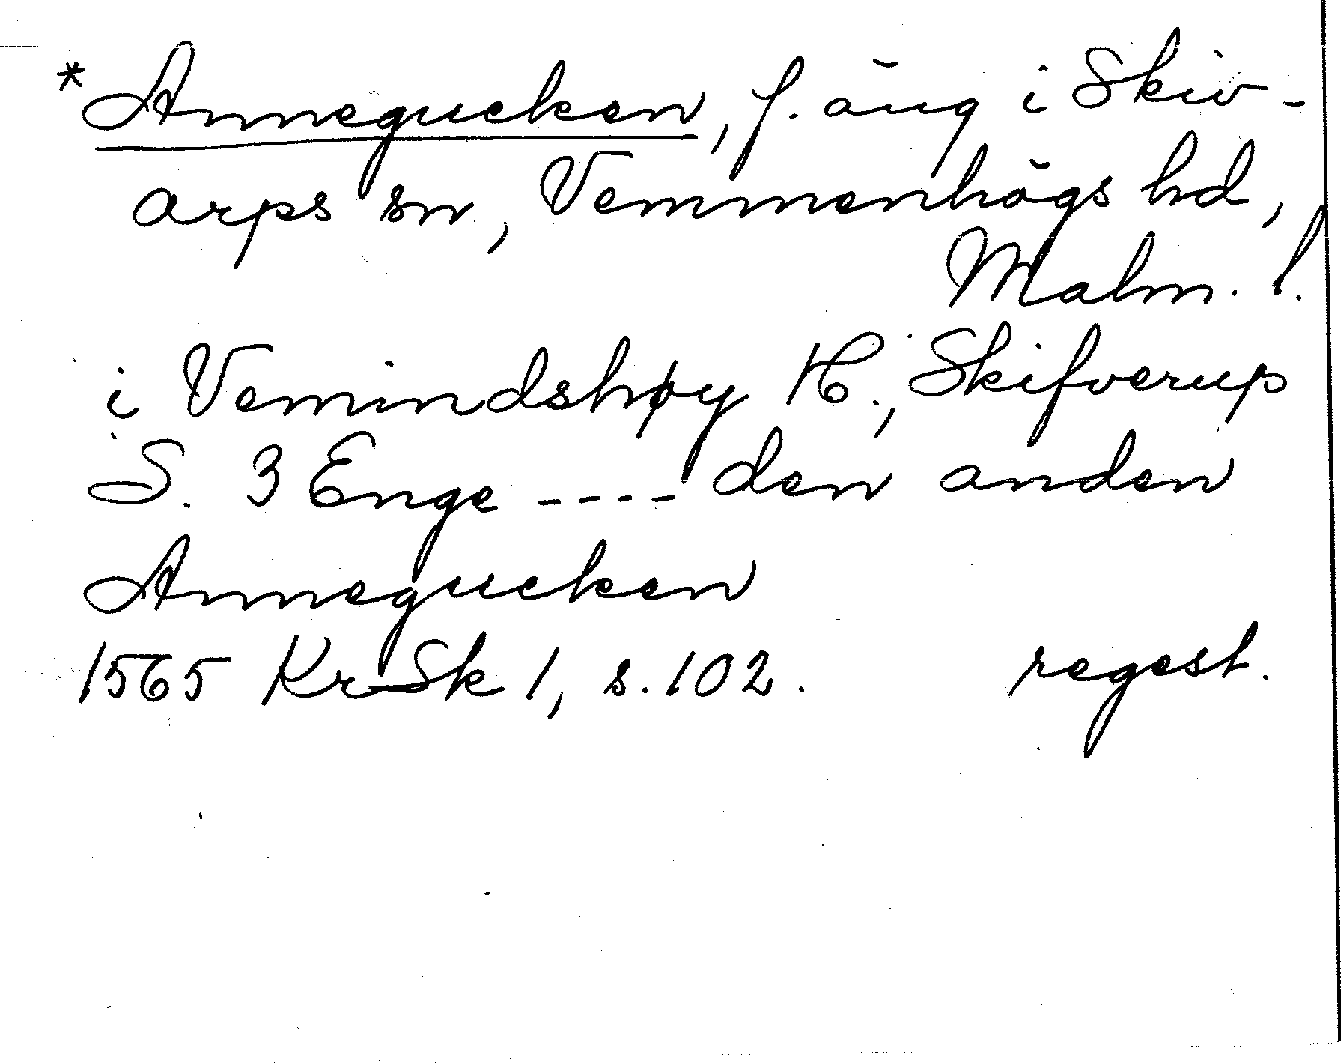 *Annegucken, f. äng i Skiv-
arps sn, Vemmenhögs hd,
Malm. l.
i Vemindshøy H., Skifverup
S. 3 Enge ---- den anden
Annegucken
1565 KrSk 1, s. 102. regest.